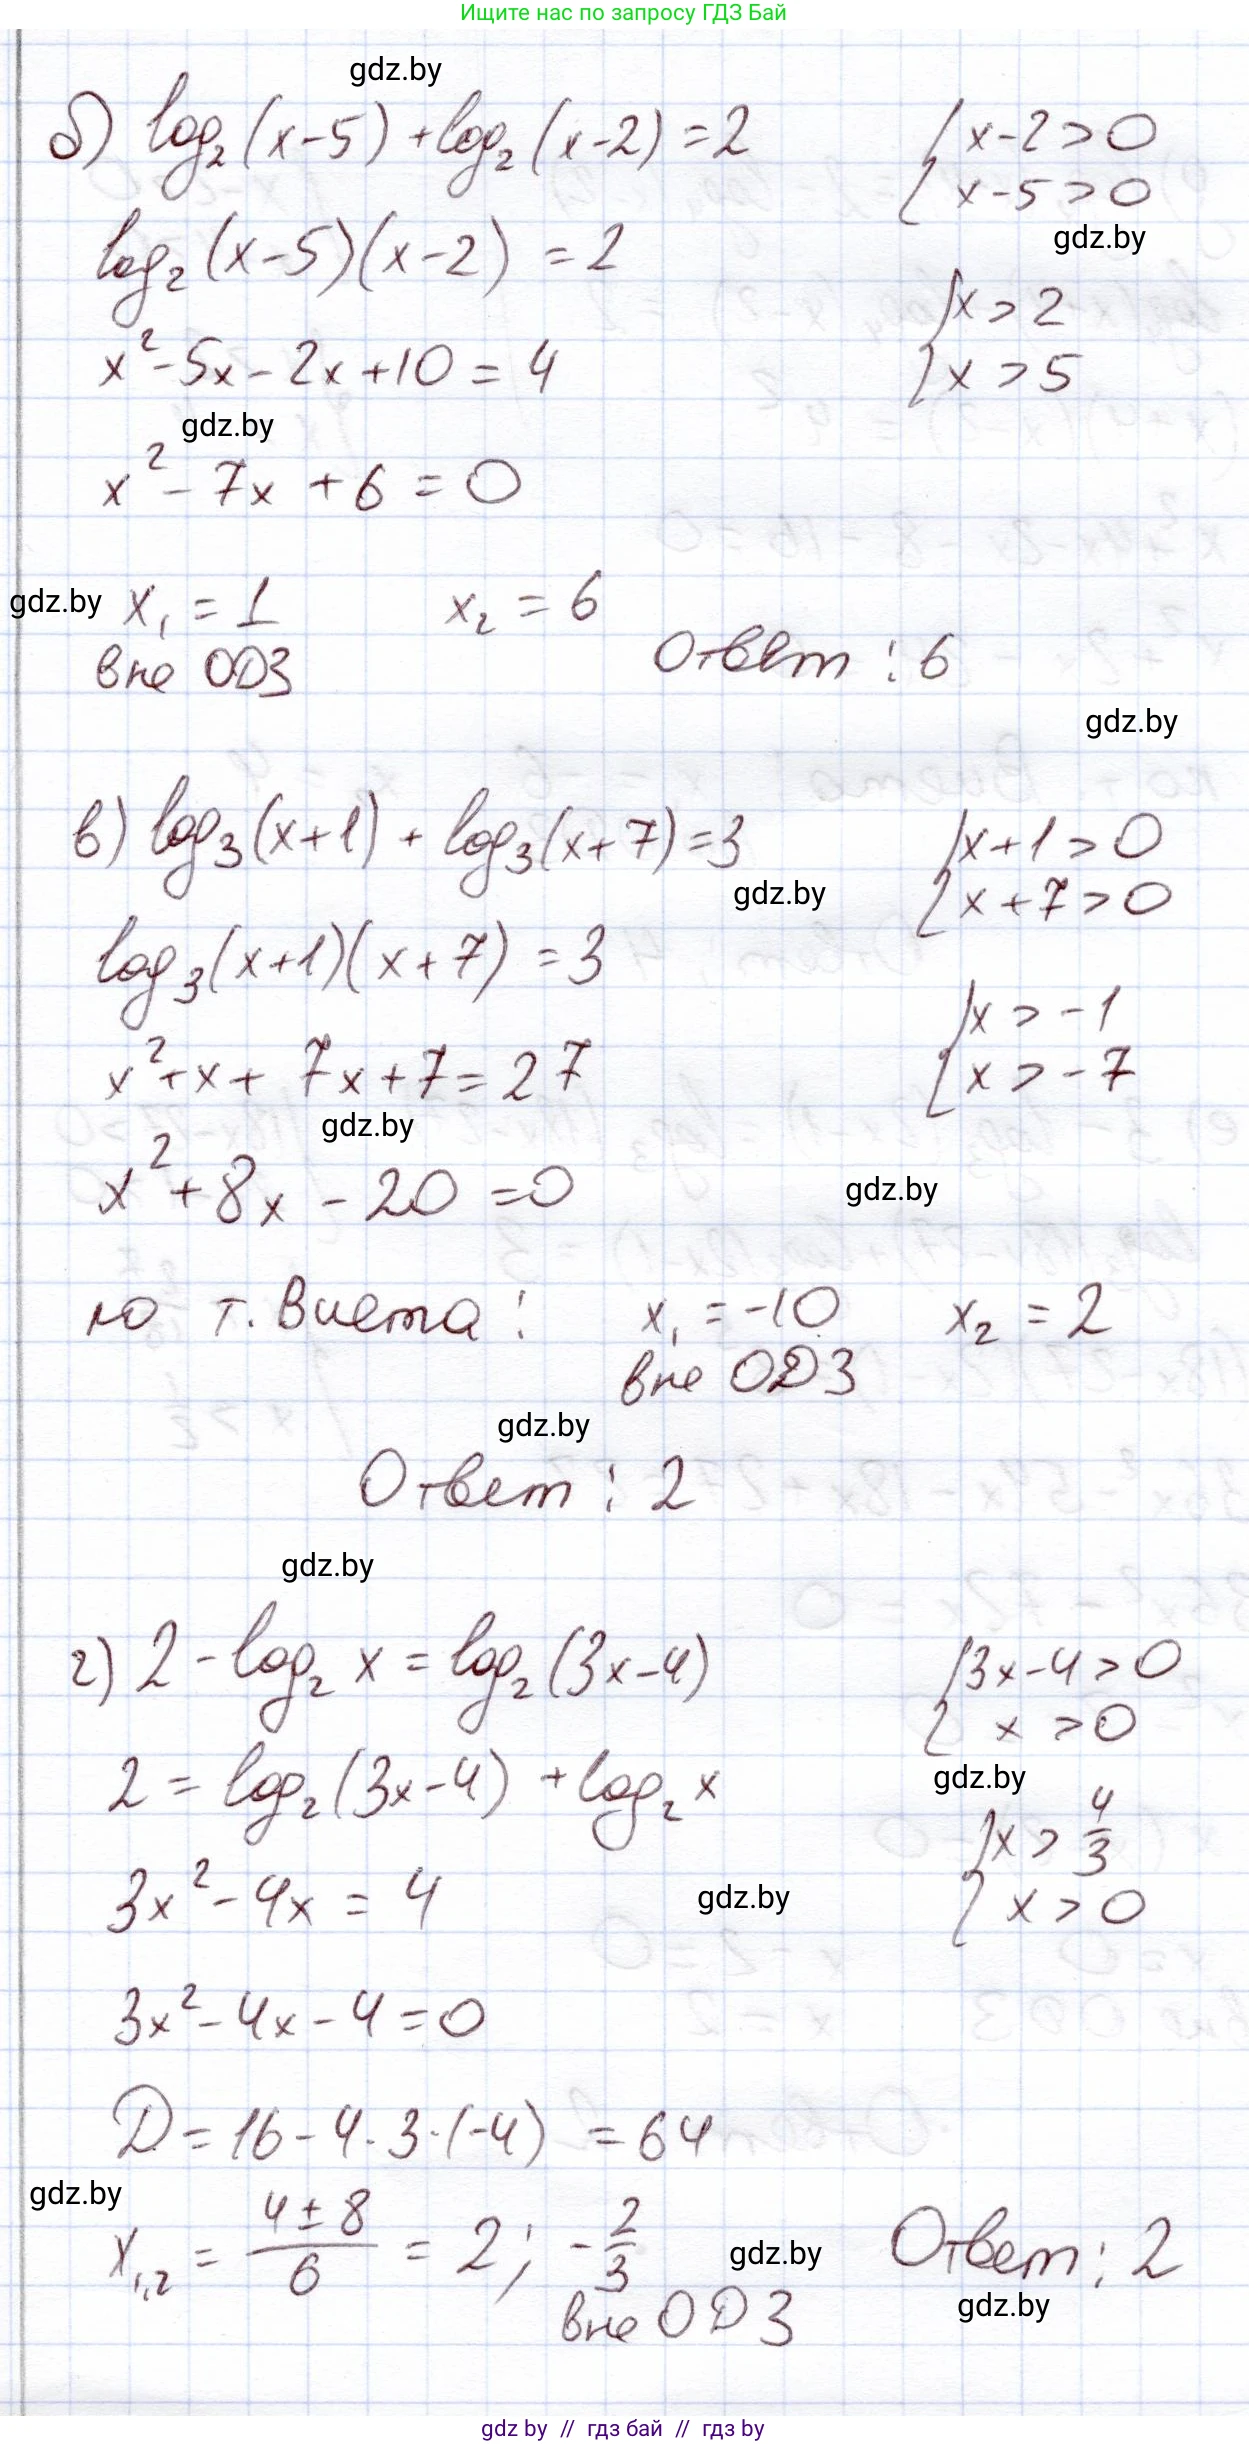 Ищите нас по запросу ГДЗ Бай
gdz.by
б) log₂(x-5) + log₂(x-2) = 2
{ x-2 > 0
{ x-5 > 0
gdz.by
log₂(x-5)(x-2) = 2
{ x > 2
{ x > 5
x² - 5x - 2x + 10 = 4
gdz.by
x² - 7x + 6 = 0
gdz.by
x₁ = 1    x₂ = 6
вне ОДЗ
Ответ: 6
gdz.by
в) log₃(x+1) + log₃(x+7) = 3
{ x+1 > 0
{ x+7 > 0
gdz.by
log₃(x+1)(x+7) = 3
{ x > -1
{ x > -7
x² + x + 7x + 7 = 27
gdz.by
x² + 8x - 20 = 0
gdz.by
по т. Виета:    x₁ = -10    x₂ = 2
вне ОДЗ
gdz.by
Ответ: 2
gdz.by
г) 2 - log₂ x = log₂(3x-4)
{ 3x-4 > 0
{ x > 0
gdz.by
2 = log₂(3x-4) + log₂ x
{ x > 4/3
{ x > 0
3x² - 4x = 4
gdz.by
3x² - 4x - 4 = 0
D = 16 - 4·3·(-4) = 64
gdz.by
x₁,₂ = (4 ± 8)/6 = 2; -2/3
gdz.by
Ответ: 2
gdz.by
вне ОДЗ
gdz by // гдз бай // гдз by